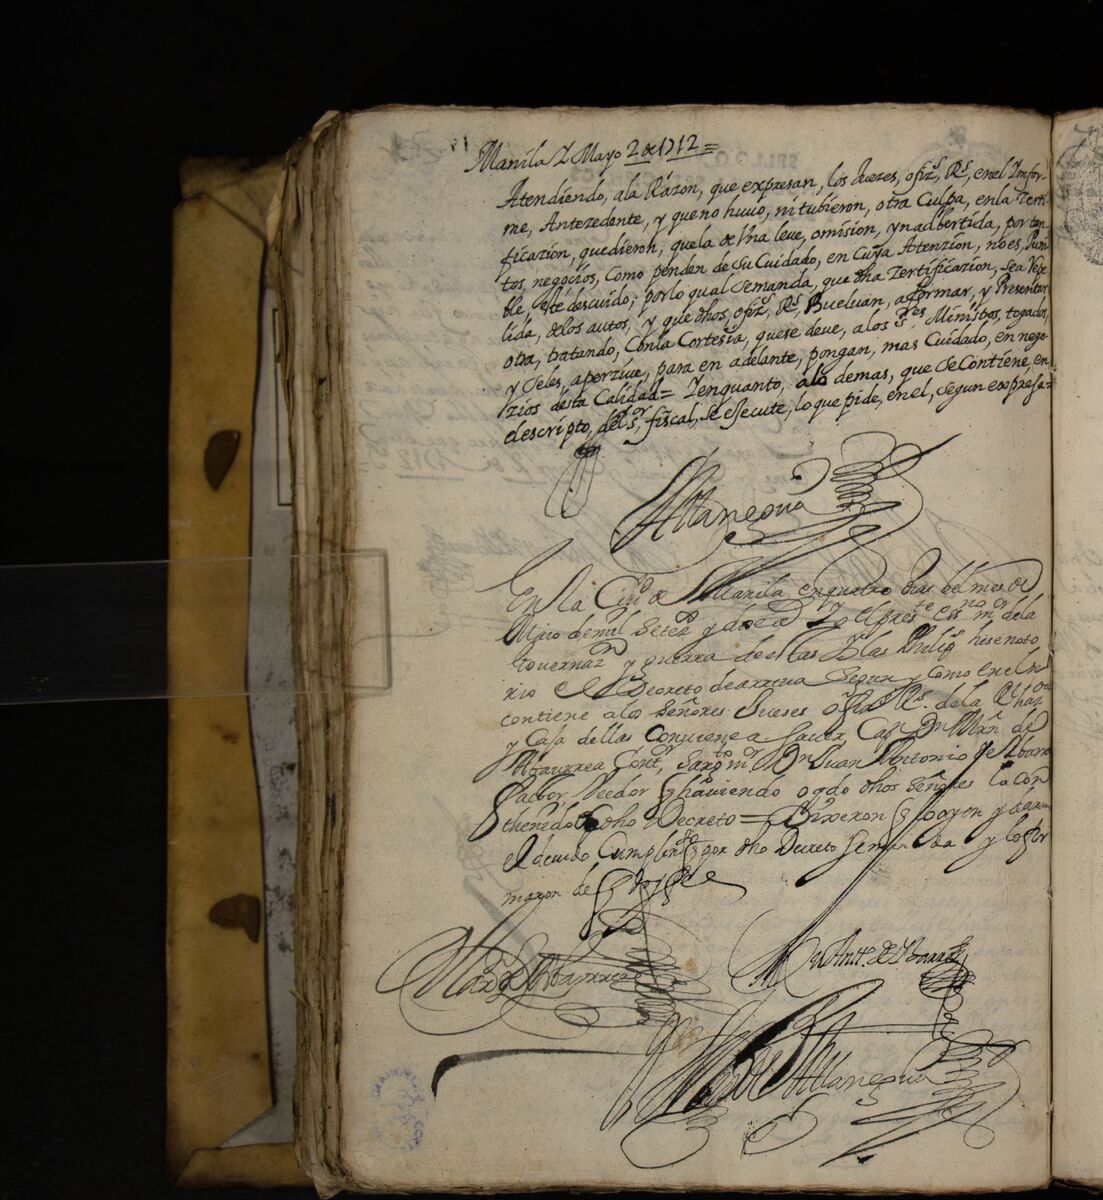 Manila Y Mayo 2 de 1712=
Atendiendo, ala Razon, que expresan, los Juezes, ofiz.s R.s, en el Ynfor-
me, Antezedente, y que no huuo, ni tubieron, otra Culpa, en la Zerti-
ficazion, que dieron, que la de Vna leve, omision, ynadbertida, por tan
tos, negocios, Como penden de su Cuidado, en Cuya Atenzion, no es, Pun
ble, este descuido; por lo qual Semanda, que dha Zertificazion, sea Repe
lida, de los autos, y que dhos, ofiz.s R.s, Bueluan, aformar, y Presentar
otra, tratando, Con la Cortesia, que se deve, a los S.res Ministros, togados,
y Seles, aperzive, para en adelante, pongan, mas Cuidado, en nego-
zios desta Calidad= Yenquanto, alo demas, que se Contiene, en
el escripto, del S.or fiscal, Se execute, lo que pide, en el, segun expresa=
Attanegui
En la Ciu.d de Manila en quatro dias del mes de
Maio de mil Setez.s y doze a.s Yo el pres.te ess.no m.or de la
Gouernaz.n y guerra de estas Yslas Philip.s hise noto
rio el Decreto de arriua Segun y como en el se
contiene a los Señores Jueses ofiz.s R.s de la R.l haz.da
y Caja dellas Conuiene a Sauer Cap.n Dn Mrn de
Abaurrea Cont.r Sarg.to m.or Dn Juan Antonio de Ybarra
factor Veedor y hauiendo oydo dhos Señores lo con
thenido en dho Decreto= Dixeron lo oyen y daran
el deuido Cumplim.to por dho Decreto Se manda y lo fir
maron de
Martin de Abaurrea
Ju Antt.o de Ybarra
Attanegui